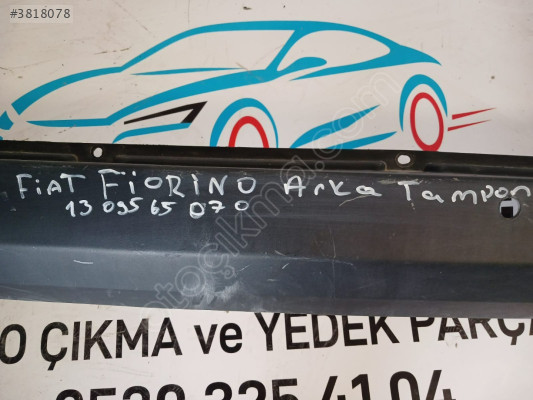 #3818078
FiAT FiORiNO Arka Tampon
13 095 65 070
otocikma.com
O ÇIKMA ve YEDEK PARÇA
0539 225 41 04